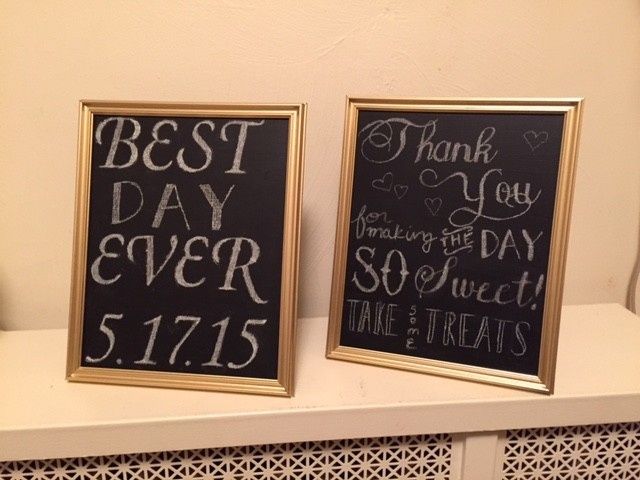 BEST
DAY
EVER
5.17.15
Thank
You
for
making THE DAY
SO Sweet!
TAKE some TREATS